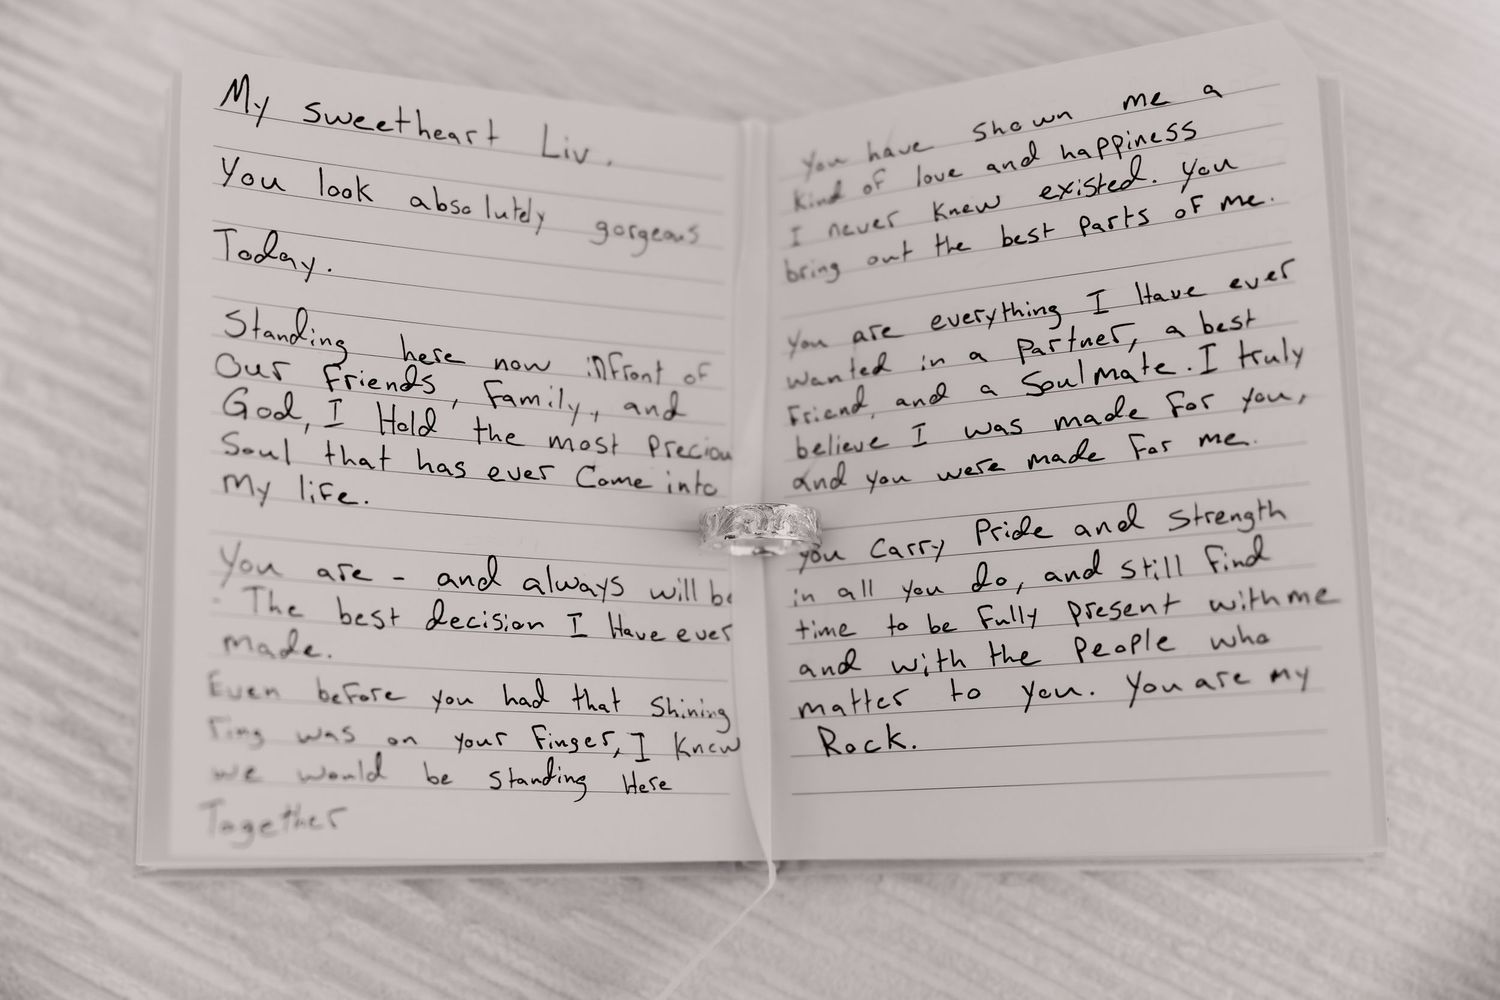 My sweetheart Liv.
You look absolutely gorgeous
Today.
Standing here now infront of
Our Friends, Family, and
God, I Hold the most Preciou
Soul that has ever Come into
My life.
You are - and always will be
- The best decision I Have ever
Made.
Even before you had that Shining
ring was on your Finger, I Knew
we would be Standing Here
Together
You have shown me a
Kind of love and happiness
I never Knew existed. You
bring out the best Parts of me.
You are everything I Have ever
wanted in a Partner, a best
Friend, and a Soulmate. I truly
believe I was made For you,
and you were made For me.
you Carry Pride and Strength
in all you do, and Still Find
time to be Fully Present with me
and with the People who
matter to you. You are my
Rock.